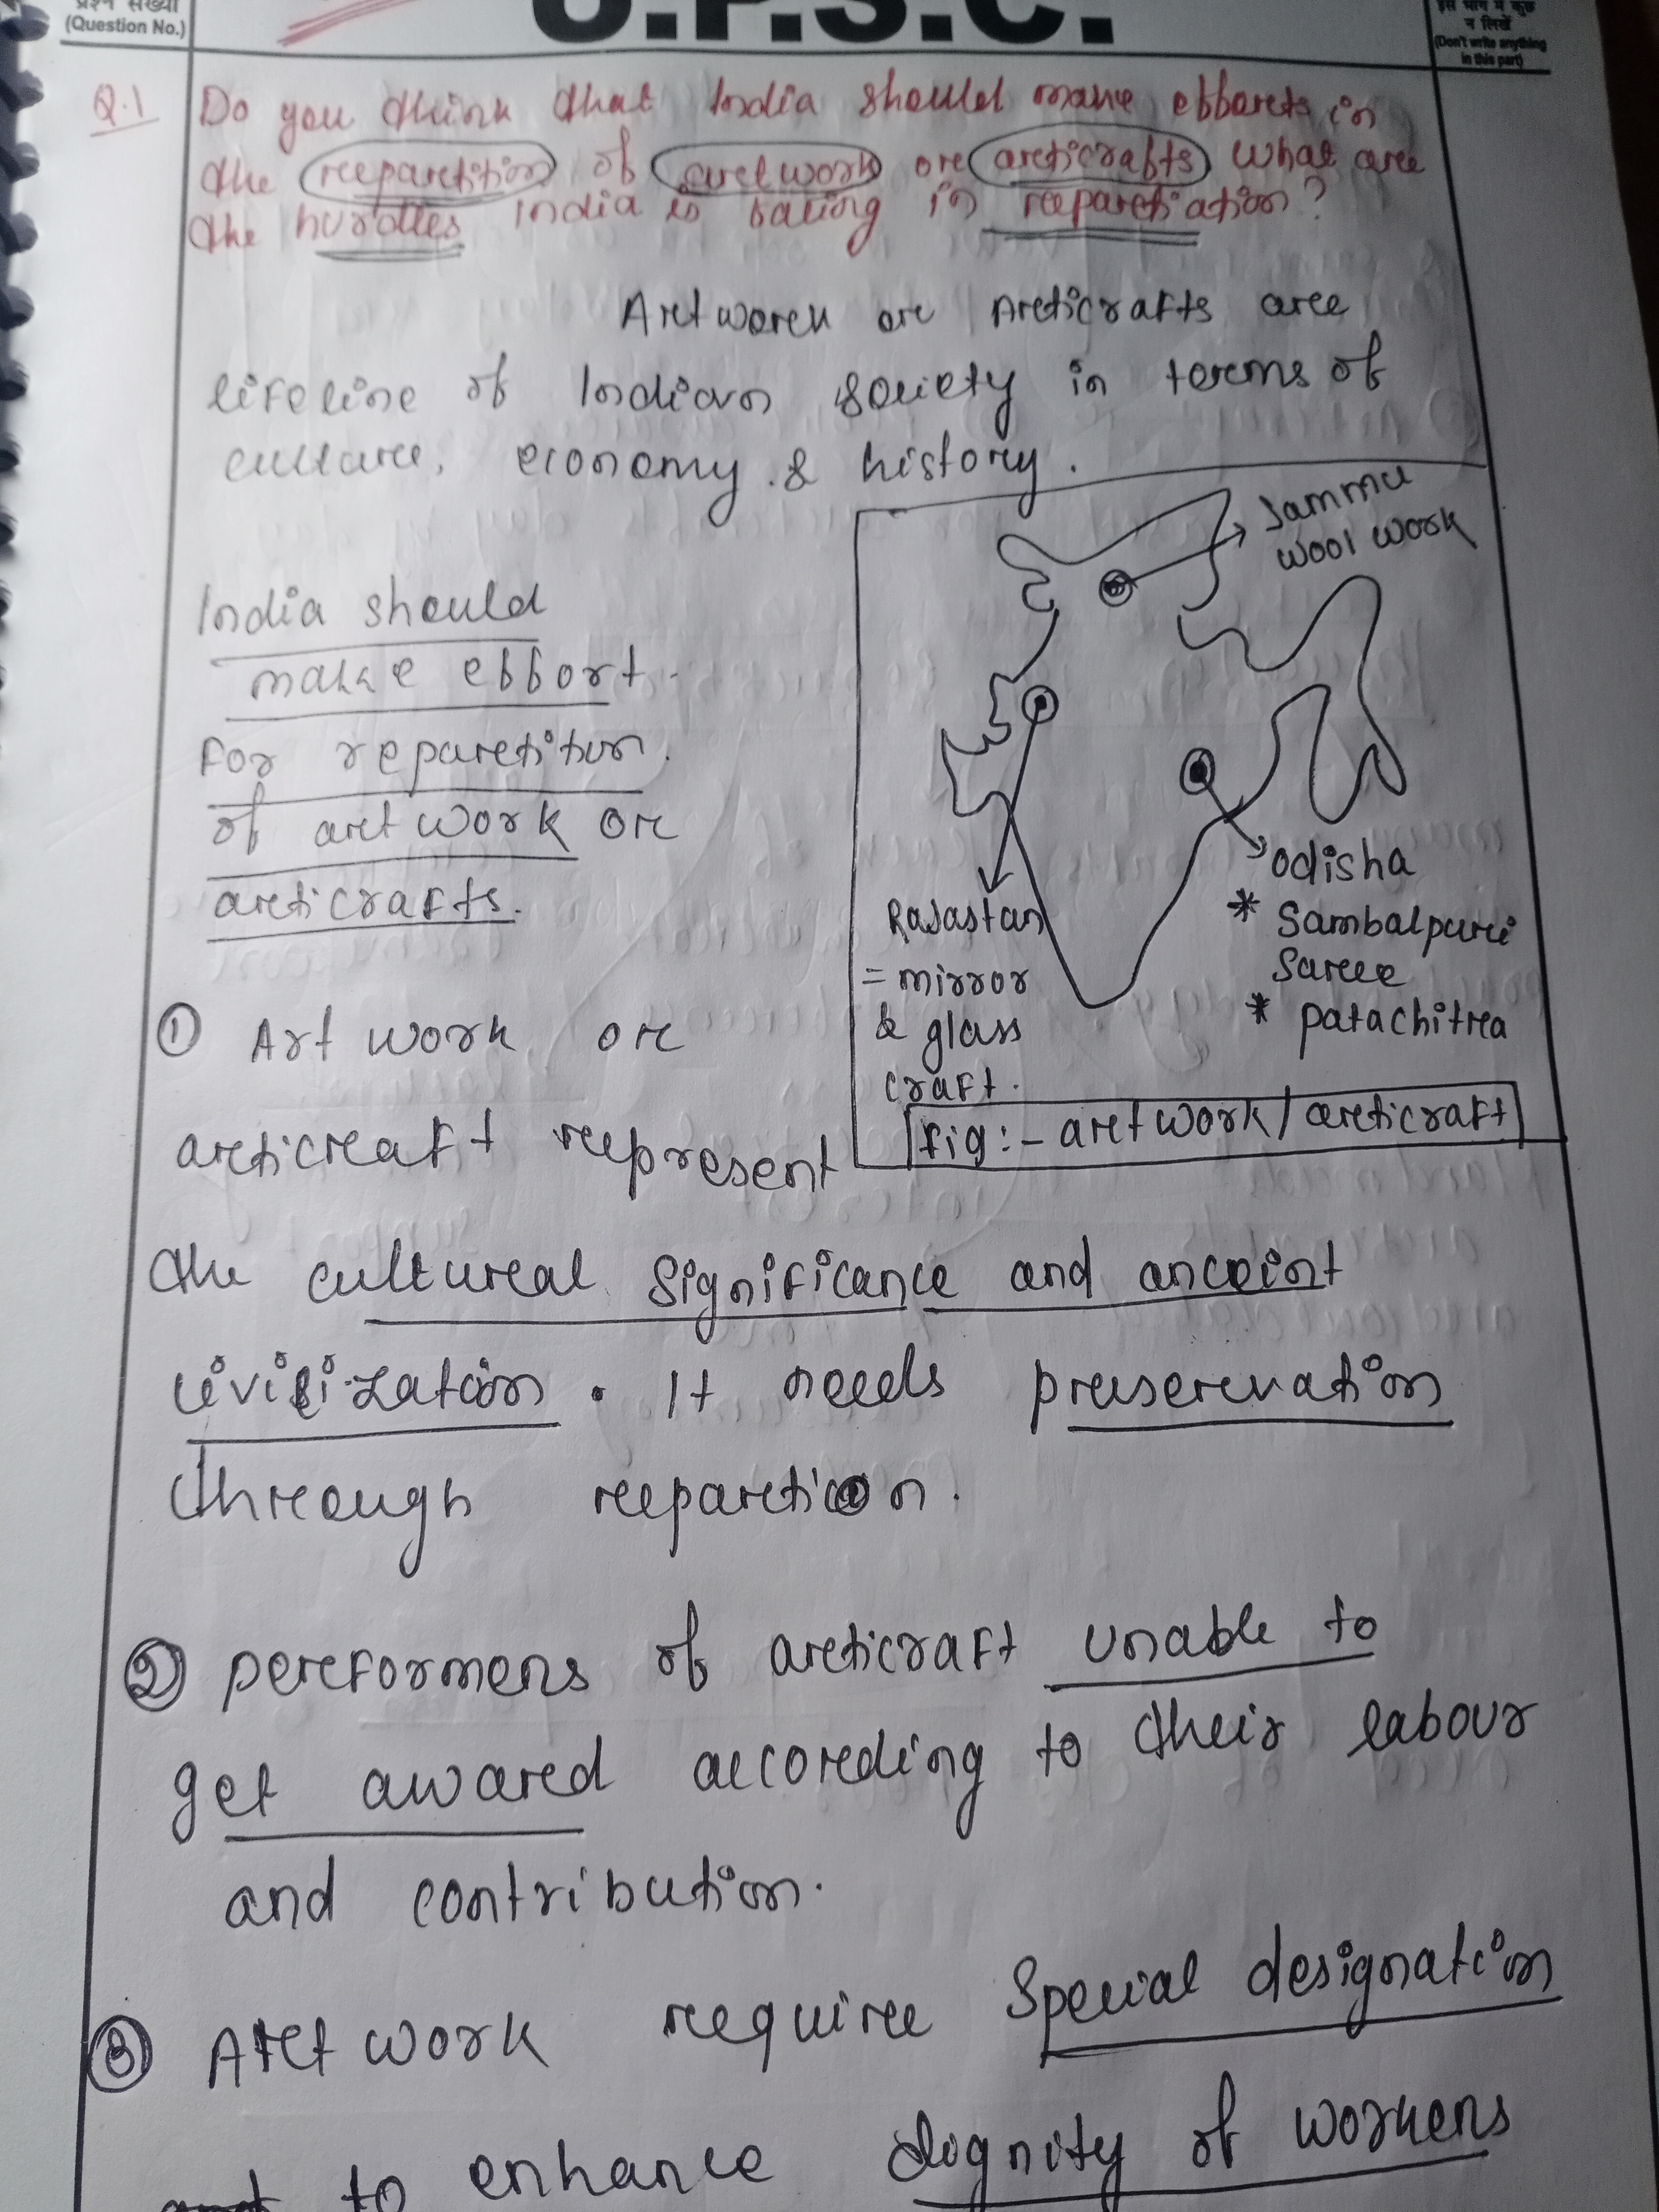 प्रश्न संख्या
(Question No.)
U.P.S.C.
इस भाग में कुछ
न लिखें
(Don't write anything
in this part)
Q.1 Do you think that India should make efforts in
the reepartition of artwork or articrafts what are
the hurdles india is facing in repartiation?
Artwork or Articrafts are
lifeline of Indian society in terms of
culture, economy & history.
India should
make effort
for repartition.
of artwork or
articrafts.
Jammu
wool work
Rajastan
= mirror
& glass
craft.
odisha
* Sambalpuri
Saree
* patachitra
fig:- artwork/articraft
① Art work or
articraft represent
the cultural significance and anceint
civilization. It needs preservation
through repartion.
② performers of articraft unable to
get award according to their labour
and contribution.
③ Art work require special designation
to enhance dignity of workers